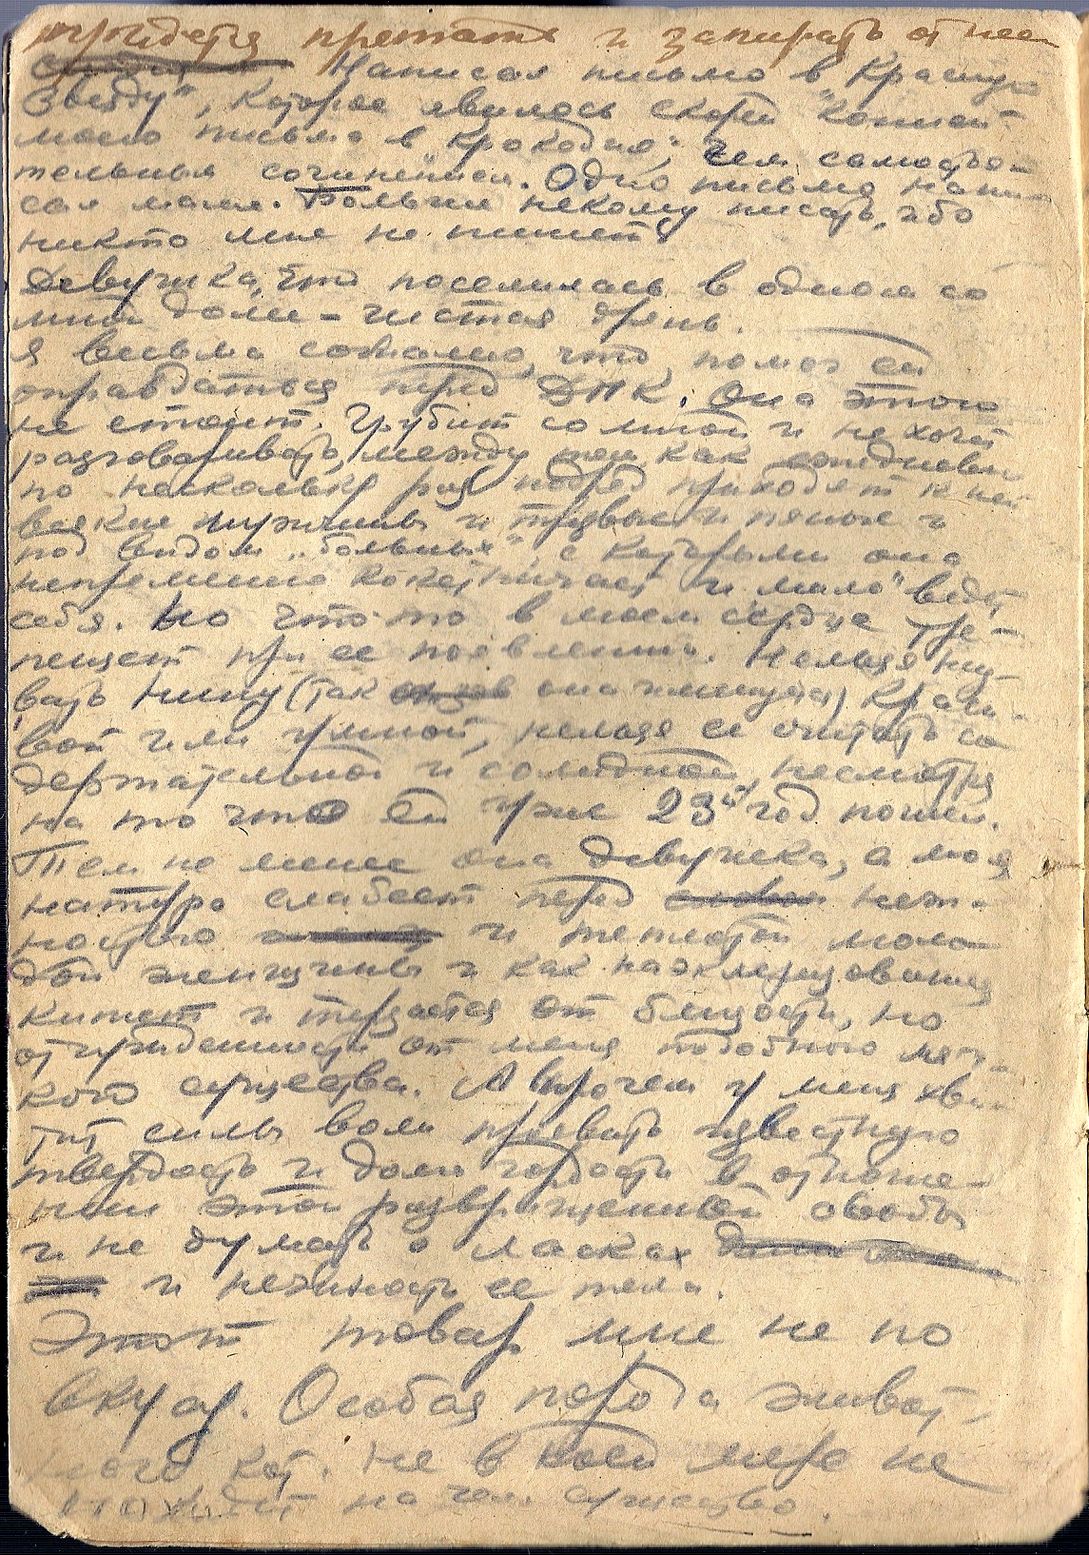 придется прятать и запирать от нее
Написал письмо в „Красную
Звезду“, которое явилось скорей "копией
моего письма в Крокодил", чем самостоя-
тельным сочинением. Одно письмо напи-
сал маме. Больше некому писать, ибо
никто мне не пишет.
Девушка, что поселилась в одном со
мной доме – чистая дрянь.
Я весьма сожалею, что помог ей
оправдаться перед ДПК. Она этого
не стоит. Грубит со мной и не хочет
разговаривать, между тем как ежедневно
по нескольку раз подряд приходят к ней
всякие мужчины и трезвые и пьяные и
под видом „больных“, с которыми она
непременно кокетничает и "мило" ведет
себя. Но что-то в моем сердце тре-
пещет при ее появлении. Нельзяназы-
вать Нину (так она именуется) краси-
вой или умной, нельзя ее считать со
держательной и солидной, несмотря
на то что ей уже 23й год пошел.
Тем не менее она девушка, а моя
натура слабеет перед неж-
ностью и теплотой моло
дой женщины и как наэлектризованная
кипит и терзается от близости, но
отчужденности от меня подобного мяг-
кого существа. А впрочем у меня хва-
тит силы воли проявить известную
твердость и долю гордости в отноше-
нии этой развращенной особы
и не думать о ласках
и нежность ее тела.
Этот товар мне не по
вкусу. Особая порода живот-
ного кот. не в коей мере не
походит на чел. существо.